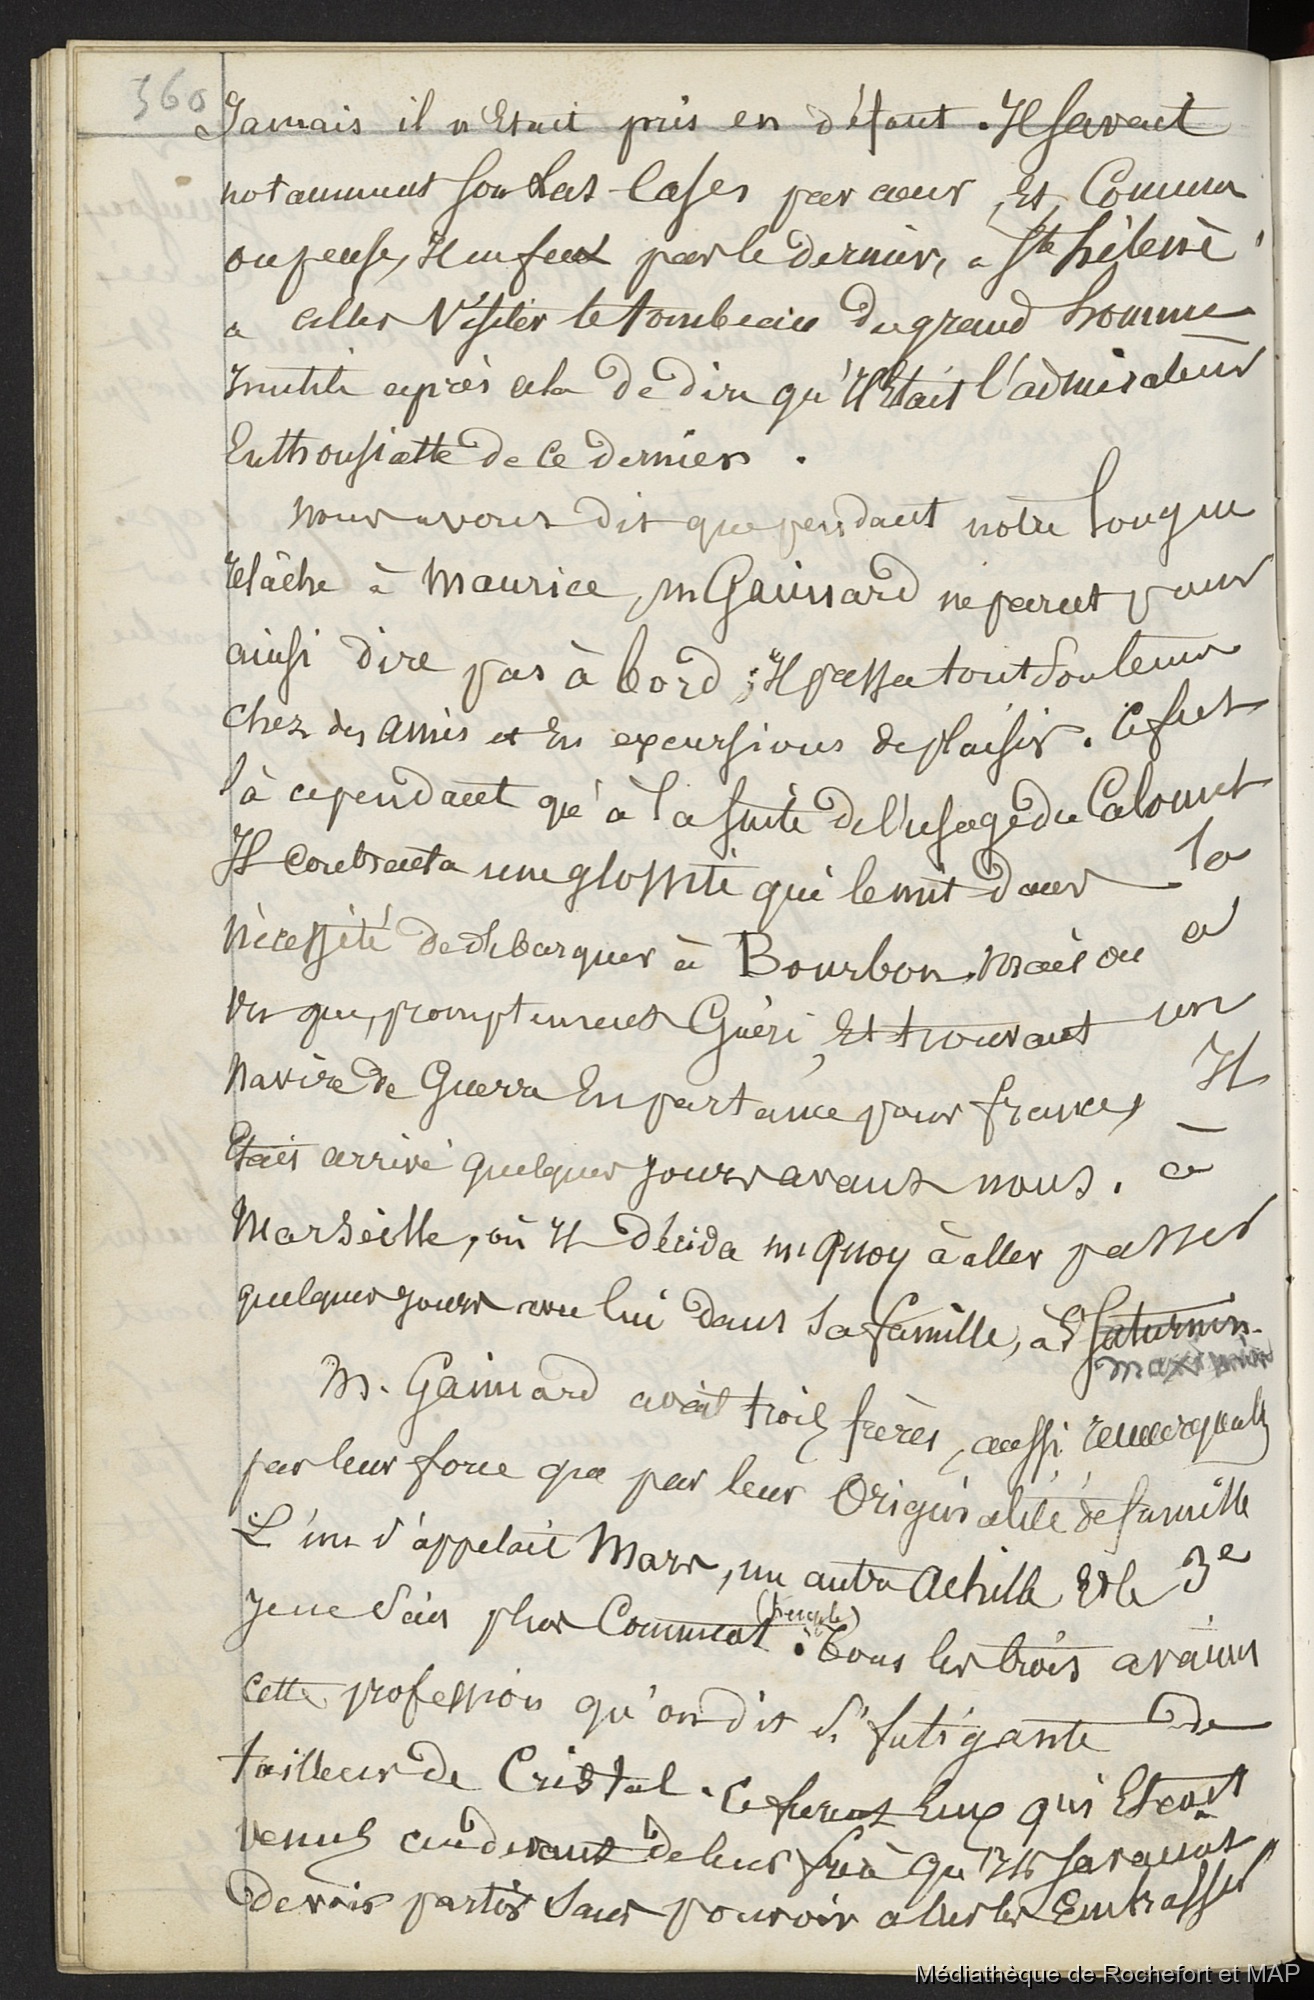 360
Jamais il n'Etait pris en défaut. Il savait
notamment son Las-Cases par cœur, Et, Comme
on pense, Il ne fut pas le dernier, a Ste hélène,
a aller Visiter le tombeau du grand homme
Inutile après cela de dire qu'Il Etait l'admirateur
Enthousiaste de ce dernier.
Nous avons dit que pendant notre longue
relâche à Maurice, M Gaimard ne parut pour
ainsi dire pas à bord; Il passa tout son temps
chez des amis et En excursions de plaisir. Ce fut
là cependant qu'à la suite de l'usage du Calomel
Il contracta une glossite qui le mit dans la
nécessité de débarquer à Bourbon, Mais on a
vu que, promptement Guéri, Et trouvant un
Navire de Guerre En partance pour france, Il
Etait arrivé quelques jours avant nous, à
Marseille, où Il décida M. Quoy à aller passer
quelques jours avec lui dans sa famille, à St Saturnin.
maximin
M. Gaimard avait trois frères, aussi remarquables
par leur force que par leur Originalité de famille
L'un s'appelait Mars, un autre Achille Et le 3e
Je ne sais plus Comment. (hercule) Tous les trois avaient
cette profession qu'on dit si fatigante de
tailleur de Cristal. Ce furent Eux qui Etaient
venus au devant de leur frère qu'Ils savaient
devoir partir sans pouvoir aller les Embrasser
Médiathèque de Rochefort et MAP